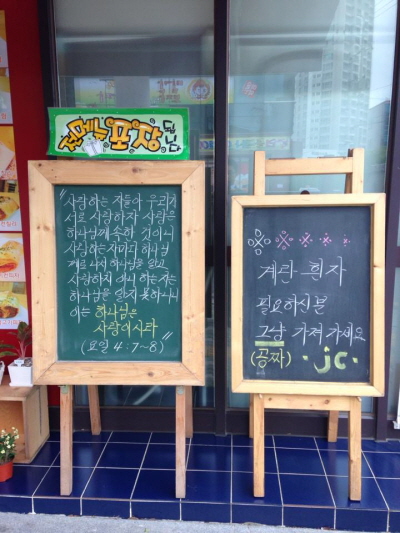 전메뉴 포장됩니다
"사랑하는 자들아 우리가
서로 사랑하자 사랑은
하나님께 속한 것이니
사랑하는 자마다 하나님
께로 나서 하나님을 알고
사랑하지 아니 하는 자는
하나님을 알지 못하나니
이는 하나님은
사랑이시라"
(요일 4:7~8)
계란 흰자
필요하신분
그냥 가져 가세요
(공짜) ·jc·